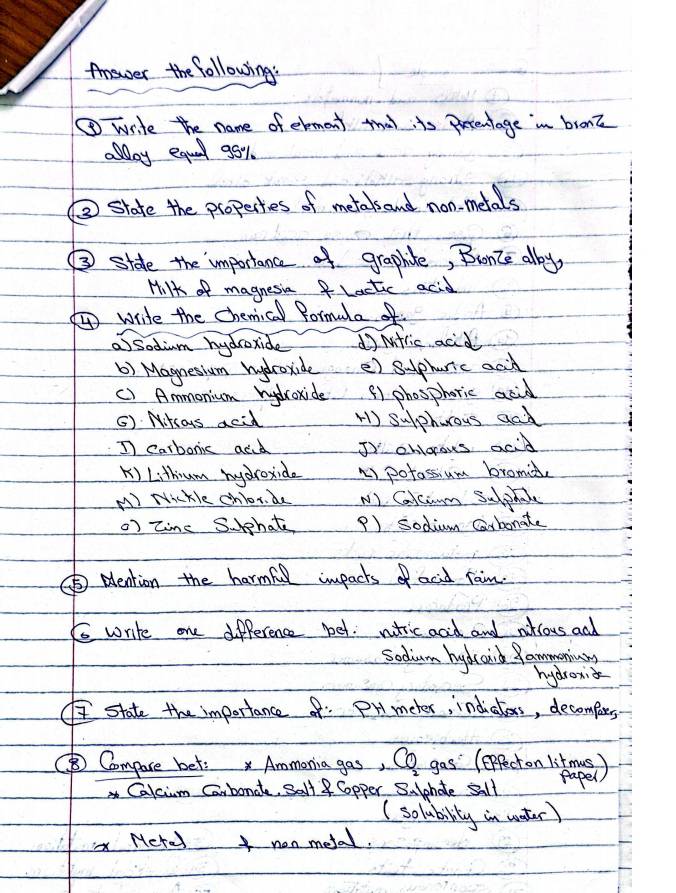 Answer the following:
① Write the name of element that its percentage in bronze
alloy equal 95%
② State the properties of metals and non-metals
③ State the importance of graphite, Bronze alloy,
Milk of magnesia & Lactic acid
④ Write the Chemical formula of:
a) Sodium hydroxide d) Nitric acid
b) Magnesium hydroxide e) Sulphuric acid
C) Ammonium hydroxide f) phosphoric acid
G) Nitrous acid H) Sulphurous acid
I) Carbonic acid J) chlorous acid
K) Lithium hydroxide L) potassium bromide
M) Nickle chloride N) Calcium Sulphate
O) Zinc Sulphate P) Sodium Carbonate
⑤ Mention the harmful impacts of acid rain.
⑥ Write one difference bet. nitric acid and nitrous acid
Sodium hydroxid & ammonium
hydroxide
⑦ State the importance of: PH meter, indicators,
⑧ Compare bet: * Ammonia gas, CO₂ gas (Effect on litmus
paper)
* Calcium Carbonate Salt & Copper Sulphate Salt
(Solubility in water)
* Metal & non metal.